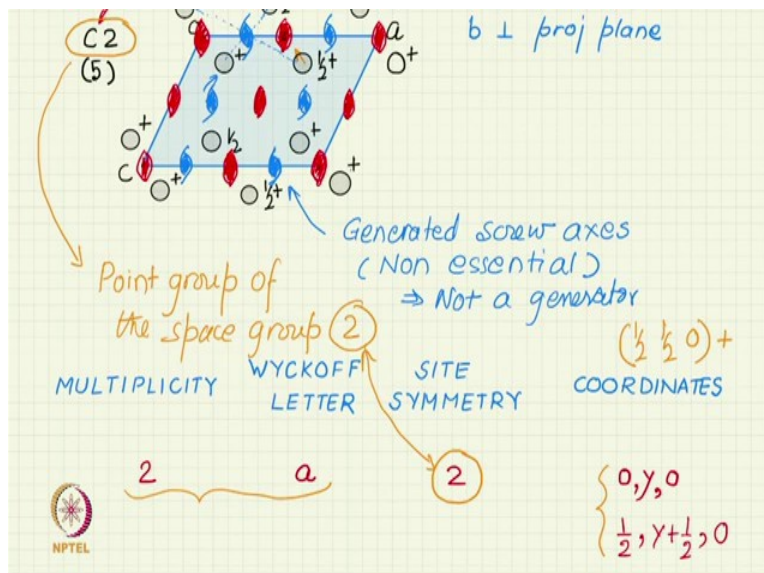 C2
b ⊥ proj plane
(5)
a
+
½+
O+
+
½
+
C
+
½+
+
Generated screw axes
(Non essential)
⇒ Not a generator
Point group of
the space group 2
(½ ½ 0)+
MULTIPLICITY WYCKOFF LETTER SITE SYMMETRY COORDINATES
2 a 2 0,y,0
½, y+½, 0
NPTEL